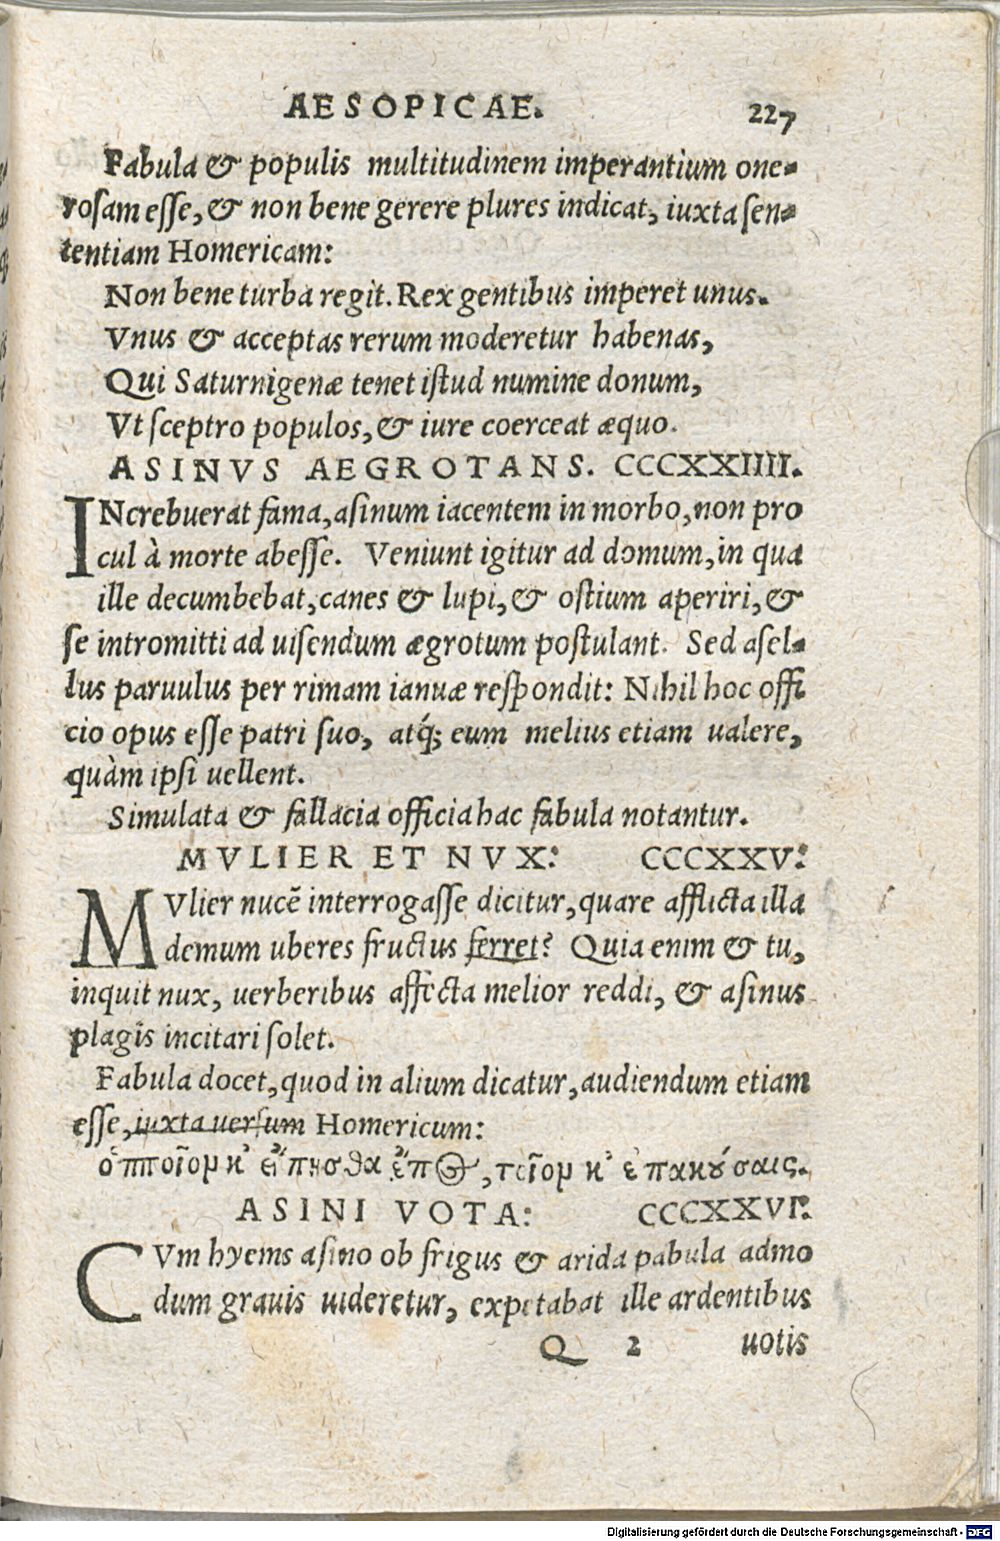 AESOPICAE. 227
Fabula & populis multitudinem imperantium one-
rosam esse, & non bene gerere plures indicat, iuxta sen-
tentiam Homericam:
Non bene turba regit. Rex gentibus imperet unus.
Vnus & acceptas rerum moderetur habenas,
Qui Saturnigenæ tenet istud numine donum,
Vt sceptro populos, & iure coerceat æquo.
ASINVS AEGROTANS. CCCXXIIII.
INcrebuerat fama, asinum iacentem in morbo, non pro
cul à morte abesse. Veniunt igitur ad domum, in qua
ille decumbebat, canes & lupi, & ostium aperiri, &
se intromitti ad uisendum ægrotum postulant. Sed asel-
lus paruulus per rimam ianuæ respondit: Nihil hoc offi
cio opus esse patri suo, atq́; eum melius etiam ualere,
quàm ipsi uellent.
Simulata & fallacia officia hac fabula notantur.
MVLIER ET NVX: CCCXXV:
MVlier nucē interrogasse dicitur, quare afflicta illa
demum uberes fructus ferret? Quia enim & tu,
inquit nux, uerberibus affecta melior reddi, & asinus
plagis incitari solet.
Fabula docet, quod in alium dicatur, audiendum etiam
esse, iuxta uersum Homericum:
ὁπποῖον κ' εἴπησθα ἔπος, τοῖον κ' ἐπακούσαις.
ASINI VOTA: CCCXXVI:
CVm hyems asino ob frigus & arida pabula admo
dum grauis uideretur, expetabat ille ardentibus
Q 2 uotis
Digitalisierung gefördert durch die Deutsche Forschungsgemeinschaft - DFG